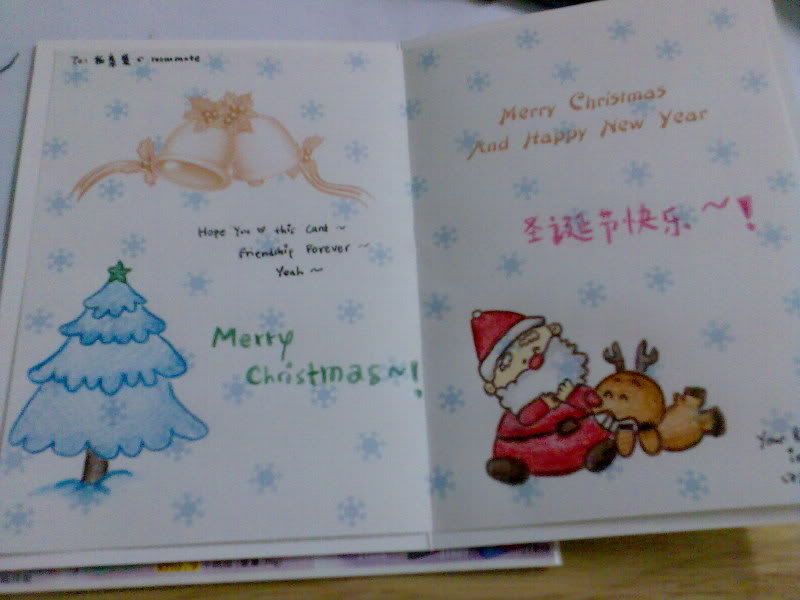 To: & roommate
Hope You ♥ this Card ~
Friendship Forever ~
Yeah ~
Merry
Christmas~!
Merry Christmas
And Happy New Year
圣誕节快乐~!
Your